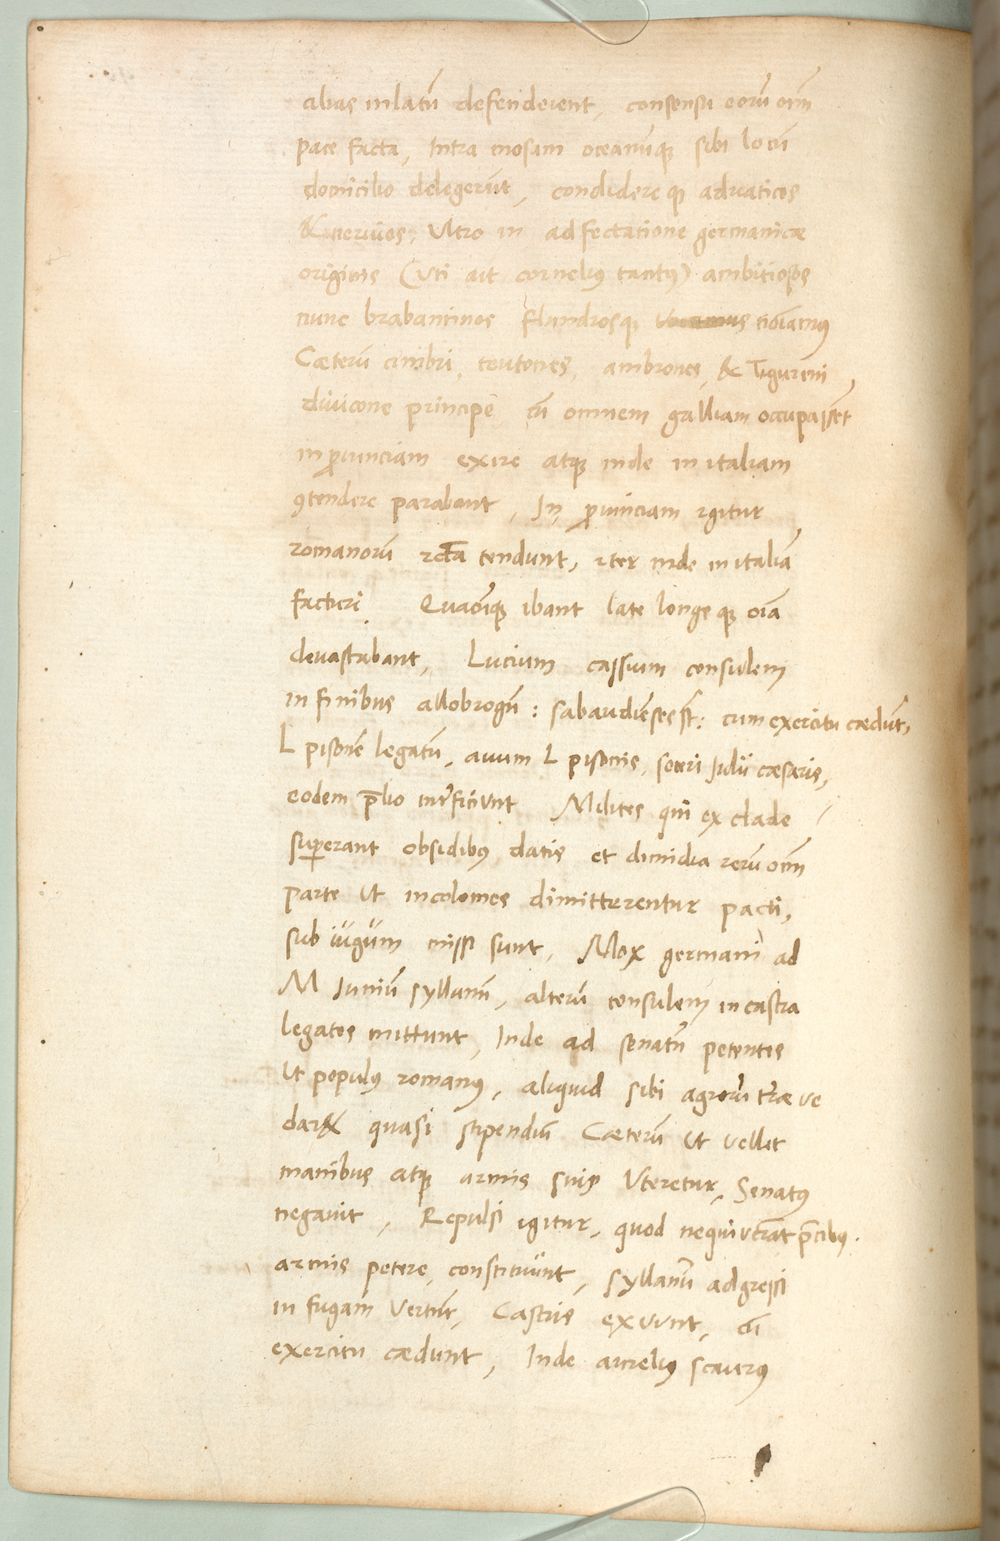 alias inlatū defenderent, consensu eorū oīm
pace facta, Intra mosam oceanūque sibi locū
domicilio delegerūt, condidereque aduaticos
& neruios, Vltro in adfectatione germanicæ
originis (vti ait cornelius tacitus) ambitiosos
nunc brabantinos flandrosque noīamus
Cæterū cimbri, teutones, ambrones, & Tigureni,
diuicone principe, cū omnem galliam occupassēt
in ꝓuinciam exire atque inde in italiam
ꝯtendere parabant, In ꝓuinciam igitur
romanorū recta tendunt, iter inde in italiā
facturi Quacūque ibant late longeque oīa
deuastabant, Lucium cassium consulem
in finibus allobrogū : sabaudiēses st̄ : cum exercitu cædūt,
L pisonē legatū, auum L pisonis, soceri Julii cæsaris,
eodem p̄lio interficiunt Milites qui ex clade
suꝑerant obsidibus datis et dimidia rerū oīm
parte Vt incolomes dimitterentur pacti,
sub iugum missi sunt, Mox germani ad
M Juniū syllanū, alterū consulem in castra
legatos mittunt, Inde ad senatū petentes
Vt populus romanus, aliquid sibi agrorū terræ ve
daret quasi stipendiū Cæterū Vt vellet
manibus atque armis suis Vteretur, Senatus
negauit, Repulsi igitur, quod nequiuerāt p̄cibus.
armis petere, constituunt, syllanū adgressi
in fugam Vertūt, Castris exuunt, cū
exercitu cædunt, Inde aurelius scaurus